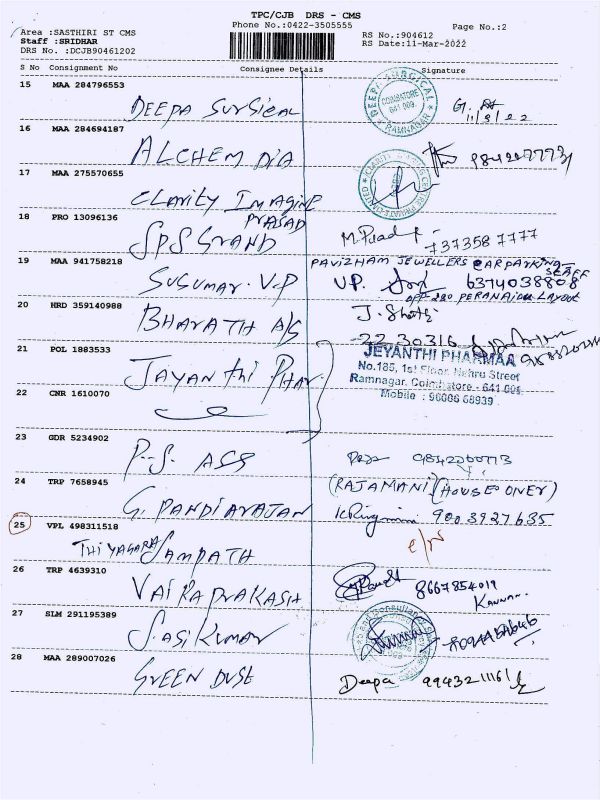 TPC/CJB DRS - CMS
Phone No.:0422-3505555
Page No.:2
Area :SASTHIRI ST CMS
Staff :SRIDHAR
DRS No. :DCJB90461202
RS No.:904612
RS Date:11-Mar-2022
S No Consignment No Consignee Details Signature
15 MAA 284796553
DEEPA SURGICAL
DEEPA SURGICAL
COIMBATORE
RAMNAGAR
11/3/22
16 MAA 284694187
ALCHEM DIA
17 MAA 275570655
CLARITY IMAGING
PRASAD
18 PRO 13096136
SPS GRAND
737358 7777
19 MAA 941758218
SUSUMAR. V.P
PAVIZHAM JEWELLERS CARPARKING
STAFF
V.P. 6374038808
OFF 220 PERANAIDU LAYOUT
20 HRD 359140988
BHARATH A/S
22 30316
21 POL 1883533
JAYANTHI PHAR
JEYANTHI PHARMAA
No.185, 1st Floor, Nehru Street
Ramnagar, Coimbatore - 641 009.
Mobile : 96006 68939
22 CNR 1610070
23 GDR 5234902
P.S. ASS
24 TRP 7658945
G. PANDIARAJAN
(RAJAMANI) (HOUSE ONER)
9003927635
25 VPL 498311518
THIYAGARA SAMPATH
26 TRP 4639310
VAIRAPRAKASH
8667854019
KANNAN.
27 SLM 291195389
SASIKUMAR
28 MAA 289007026
GREEN DUST
Deepa 9943211161